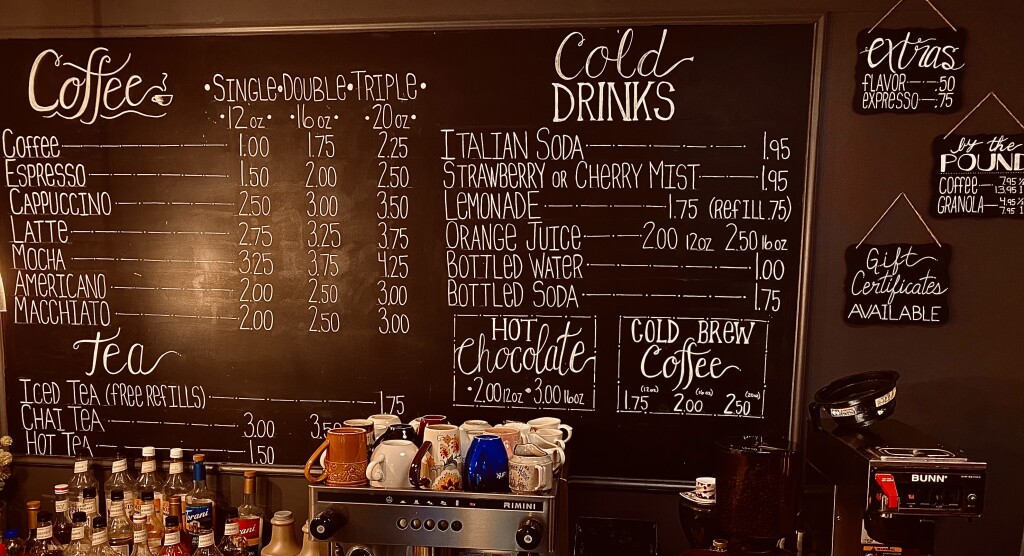 Coffee
•SINGLE•DOUBLE•TRIPLE•
•12oz• •16oz• •20oz•
COFFEE 1.00 1.75 2.25
ESPRESSO 1.50 2.00 2.50
CAPPUCCINO 2.50 3.00 3.50
LATTE 2.75 3.25 3.75
MOCHA 3.25 3.75 4.25
AMERICANO 2.00 2.50 3.00
MACCHIATO 2.00 2.50 3.00
Tea
ICED TEA (FREE REFILLS) 1.75
CHAI TEA 3.00
HOT TEA 1.50
Cold
DRINKS
ITALIAN SODA 1.95
STRAWBERRY OR CHERRY MIST 1.95
LEMONADE 1.75 (REFILL .75)
ORANGE JUICE 2.00 12oz 2.50 16oz
BOTTLED WATER 1.00
BOTTLED SODA 1.75
HOT
chocolate
•2.00 12oz •3.00 16oz
COLD BREW
Coffee
(12oz) (16oz) (20oz)
1.75 2.00 2.50
extras
FLAVOR .50
EXPRESSO .75
by the
POUND
COFFEE 7.95 ½
13.95 1
GRANOLA 4.95 ½
7.95 1
Gift
Certificates
AVAILABLE
RIMINI
BUNN